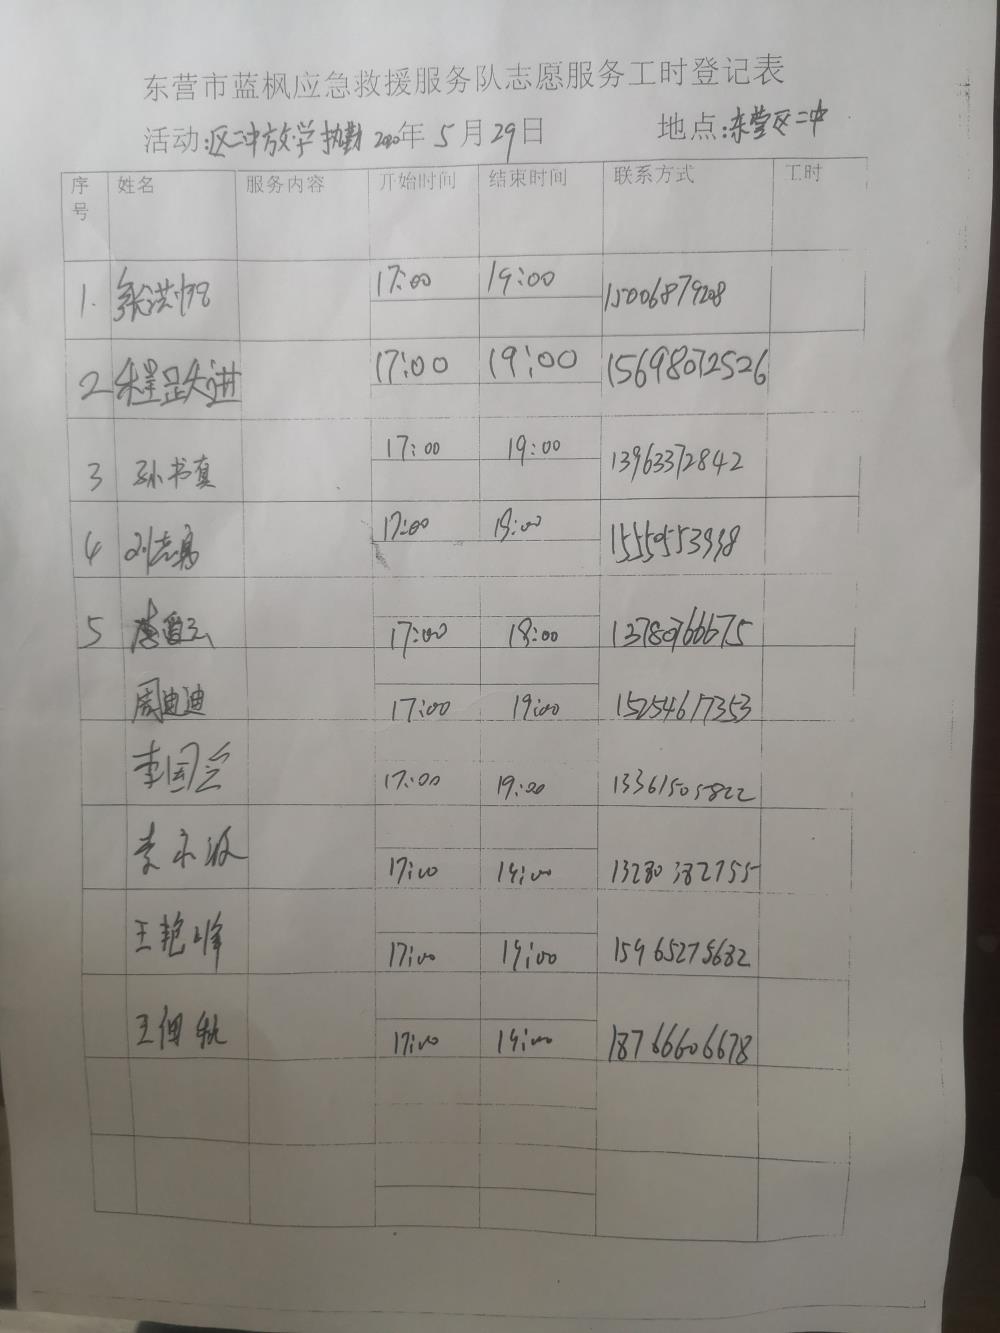 东营市蓝枫应急救援服务队志愿服务工时登记表
活动:区二中放学执勤 2020年 5月29日 地点:东营区二中
序号 姓名 服务内容 开始时间 结束时间 联系方式 工时
1. 张洪 17:00 19:00 15006879208
2 程跃进 17:00 19:00 15698072526
3 孙书真 17:00 19:00 13963372842
4 刘志勇 17:00 19:00
5 17:00 19:00 13780766675
周迪迪 17:00 19:00 15254617353
李国兰 17:00 19:00 13361505822
李永波 17:00 19:00 13280382755
王艳峰 17:00 19:00 15965275682
王 17:00 19:00 18766606678